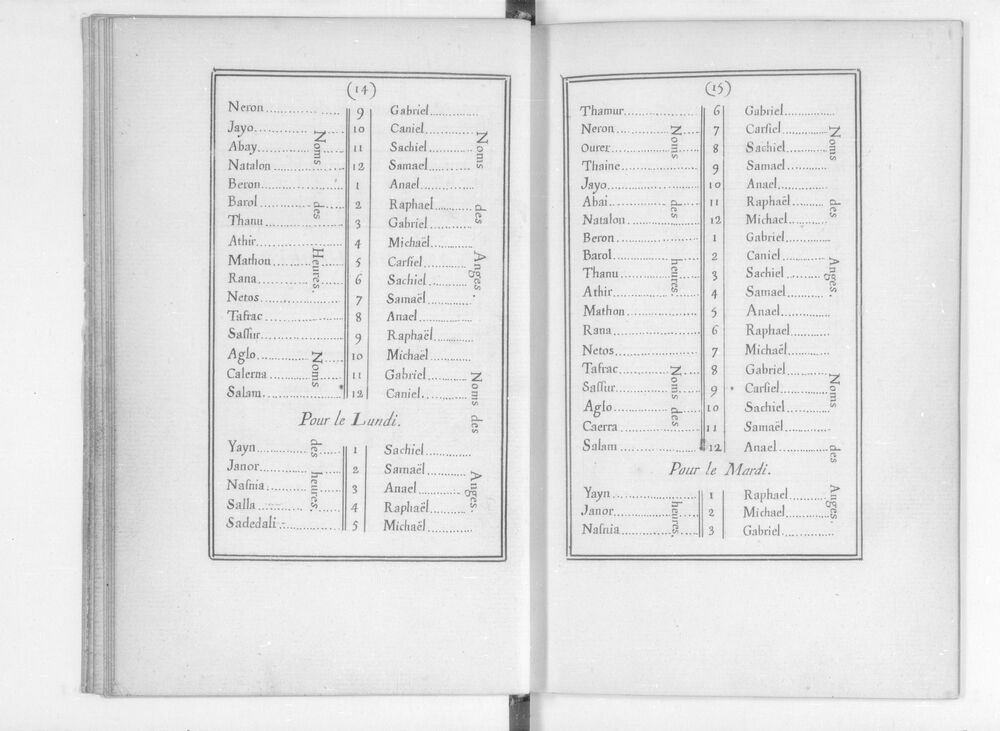 (14)
Neron 9 Gabriel
Jayo 10 Caniel
Abay 11 Sachiel
Natalon 12 Samael
Beron 1 Anael
Barol 2 Raphael
Thanu 3 Gabriel
Athir 4 Michaël
Mathon 5 Carſiel
Rana 6 Sachiel
Netos 7 Samaël
Tafrac 8 Anael
Saſſur 9 Raphaël
Aglo 10 Michaël
Calerna 11 Gabriel
Salam 12 Caniel
Noms des Heures.
Noms des Anges.
Pour le Lundi.
Yayn 1 Sachiel
Janor 2 Samaël
Naſnia 3 Anael
Salla 4 Raphaël
Sadedali 5 Michaël
Noms des heures.
Noms des Anges.
(15)
Thamur 6 Gabriel
Neron 7 Carſiel
Ourer 8 Sachiel
Thaine 9 Samael
Jayo 10 Anael
Abai 11 Raphaël
Natalon 12 Michael
Beron 1 Gabriel
Barol 2 Caniel
Thanu 3 Sachiel
Athir 4 Samael
Mathon 5 Anael
Rana 6 Raphael
Netos 7 Michaël
Tafrac 8 Gabriel
Saſſur 9 Carſiel
Aglo 10 Sachiel
Caerra 11 Samaël
Salam 12 Anael
Noms des heures
Noms des Anges.
Pour le Mardi.
Yayn 1 Raphael
Janor 2 Michael
Naſnia 3 Gabriel
Noms des heures.
Noms des Anges.